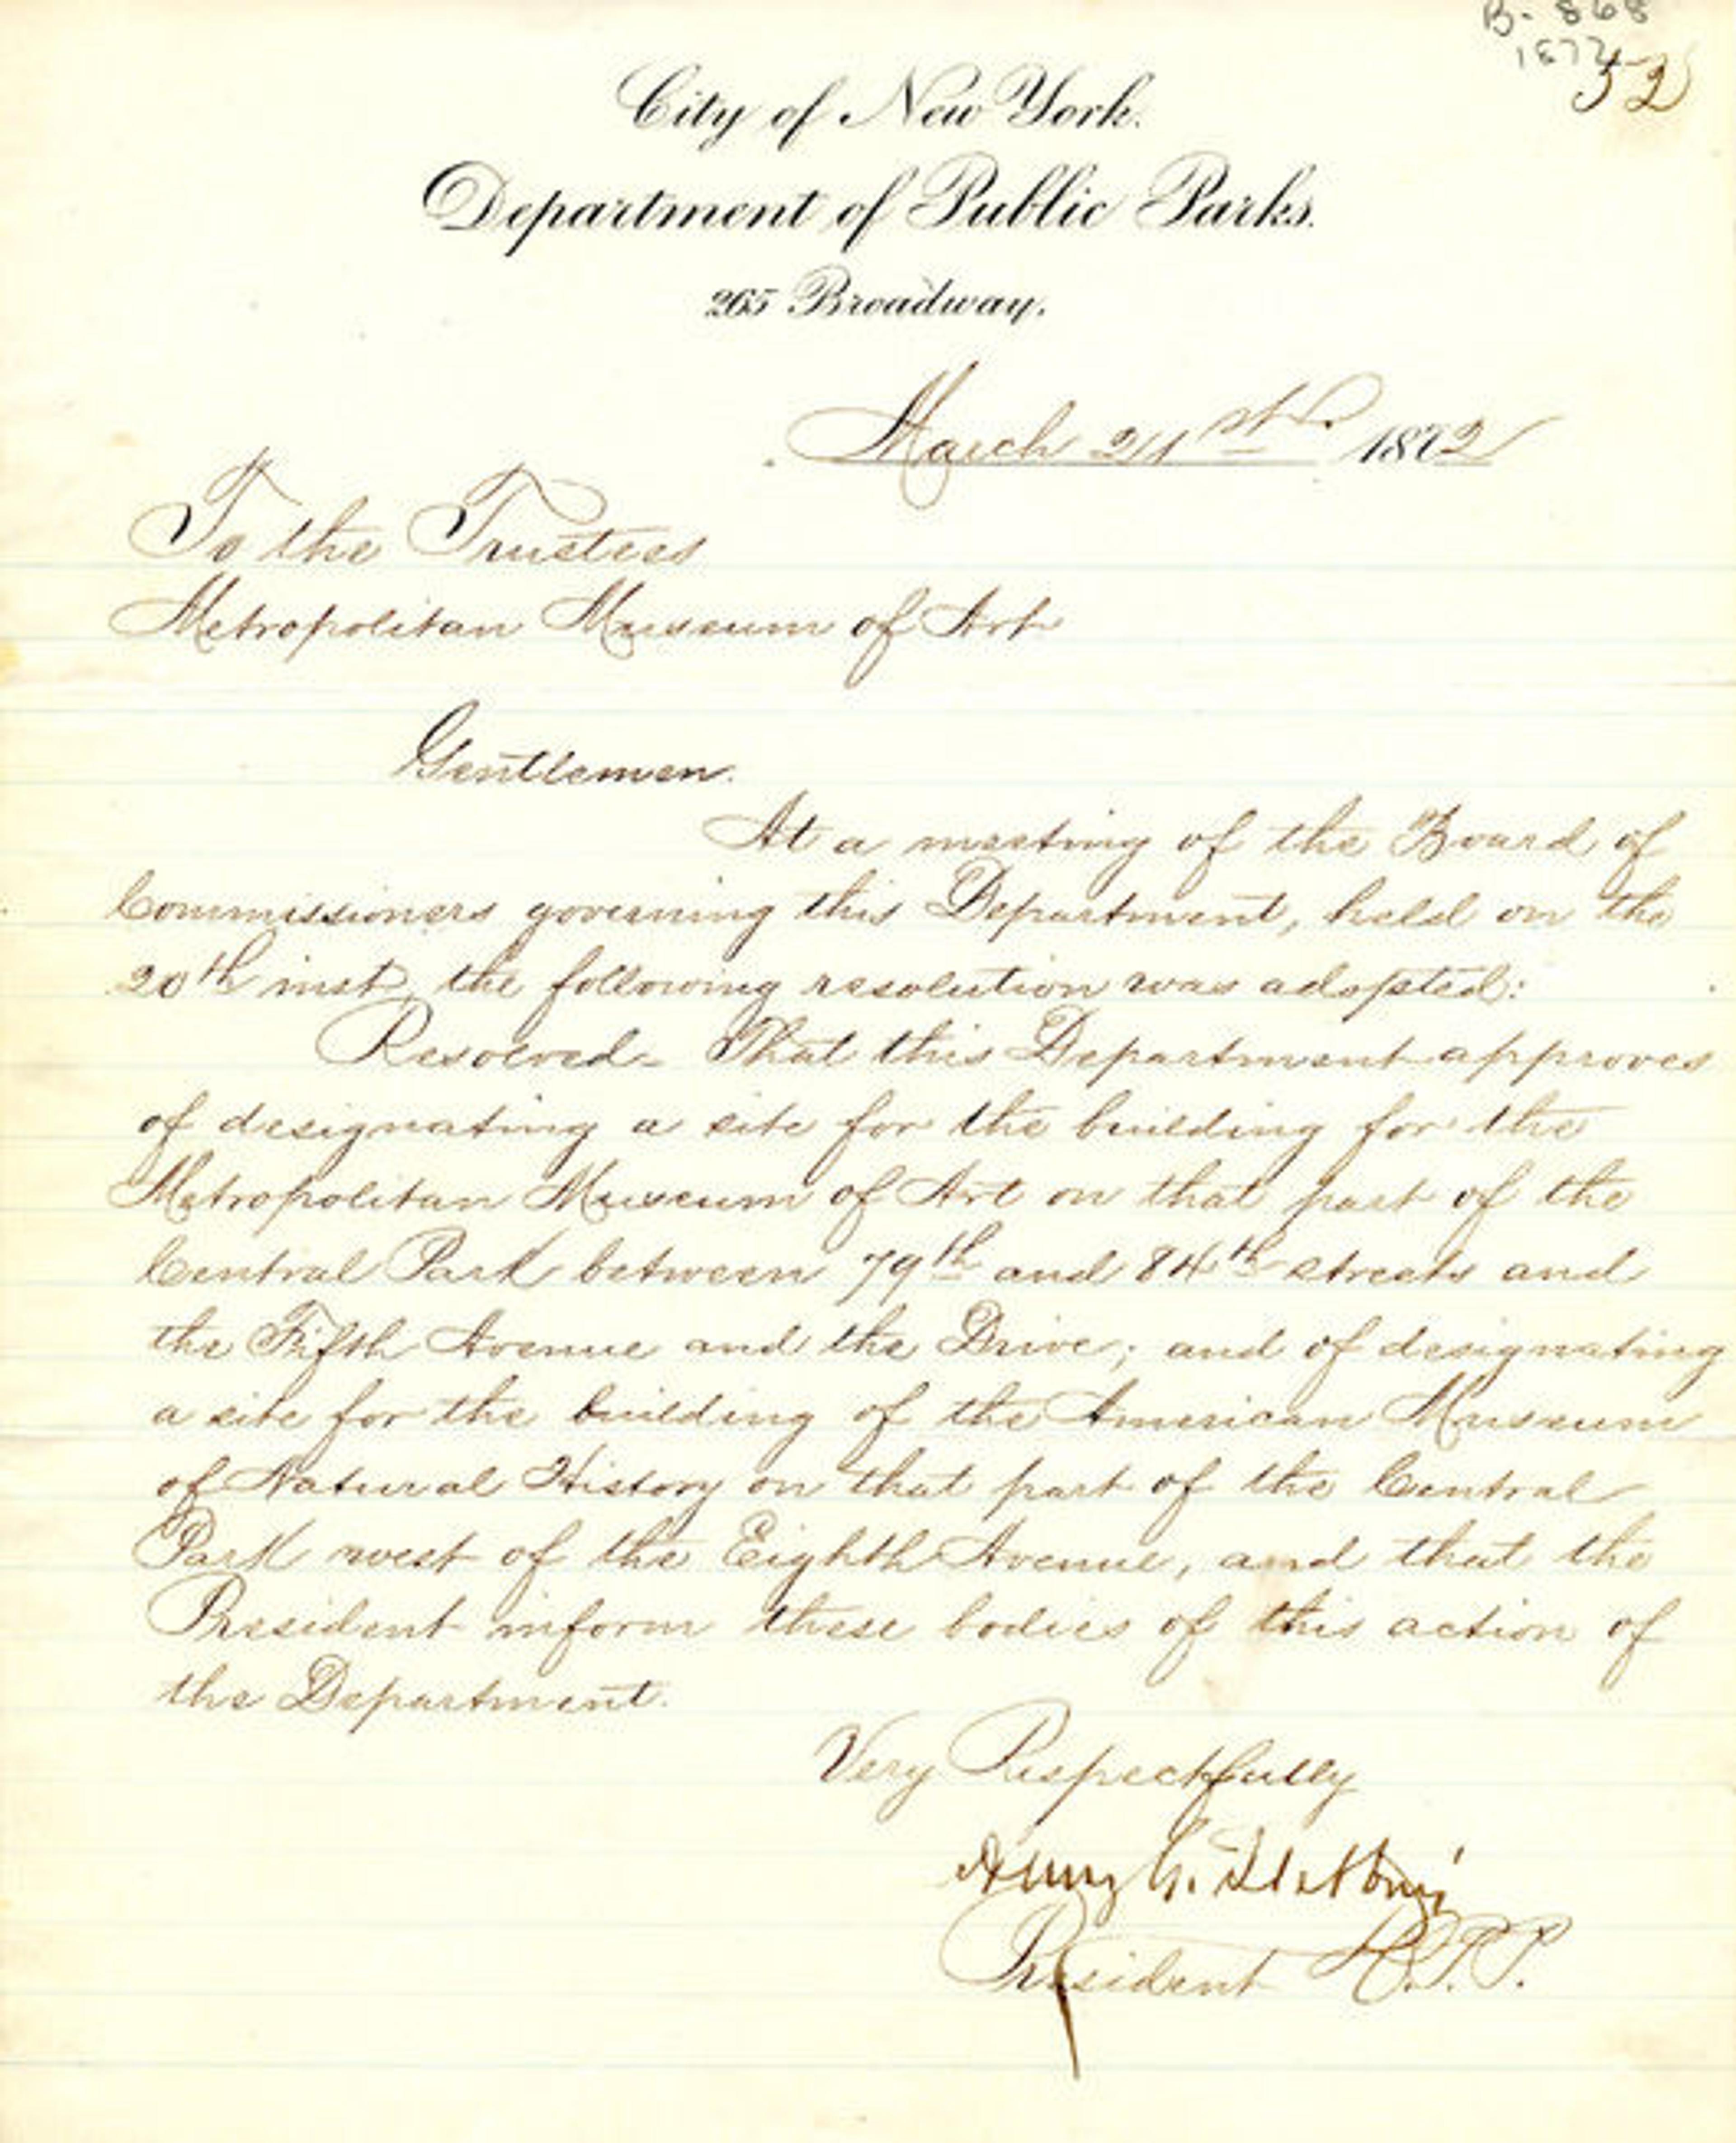 B- 868
1872
52
City of New York.
Department of Public Parks.
265 Broadway.
March 21st 1872
To the Trustees
Metropolitan Museum of Art
Gentlemen.
At a meeting of the Board of
Commissioners governing this Department, held on the
20th inst, the following resolution was adopted:
Resolved- That this Department approves
of designating a site for the building for the
Metropolitan Museum of Art on that part of the
Central Park between 79th and 84th streets and
the Fifth Avenue and the Drive; and of designating
a site for the building of the American Museum
of Natural History on that part of the Central
Park west of the Eighth Avenue, and that the
President inform these bodies of this action of
the Department.
Very Respectfully
Henry G. Stebbins
President D.P.P.